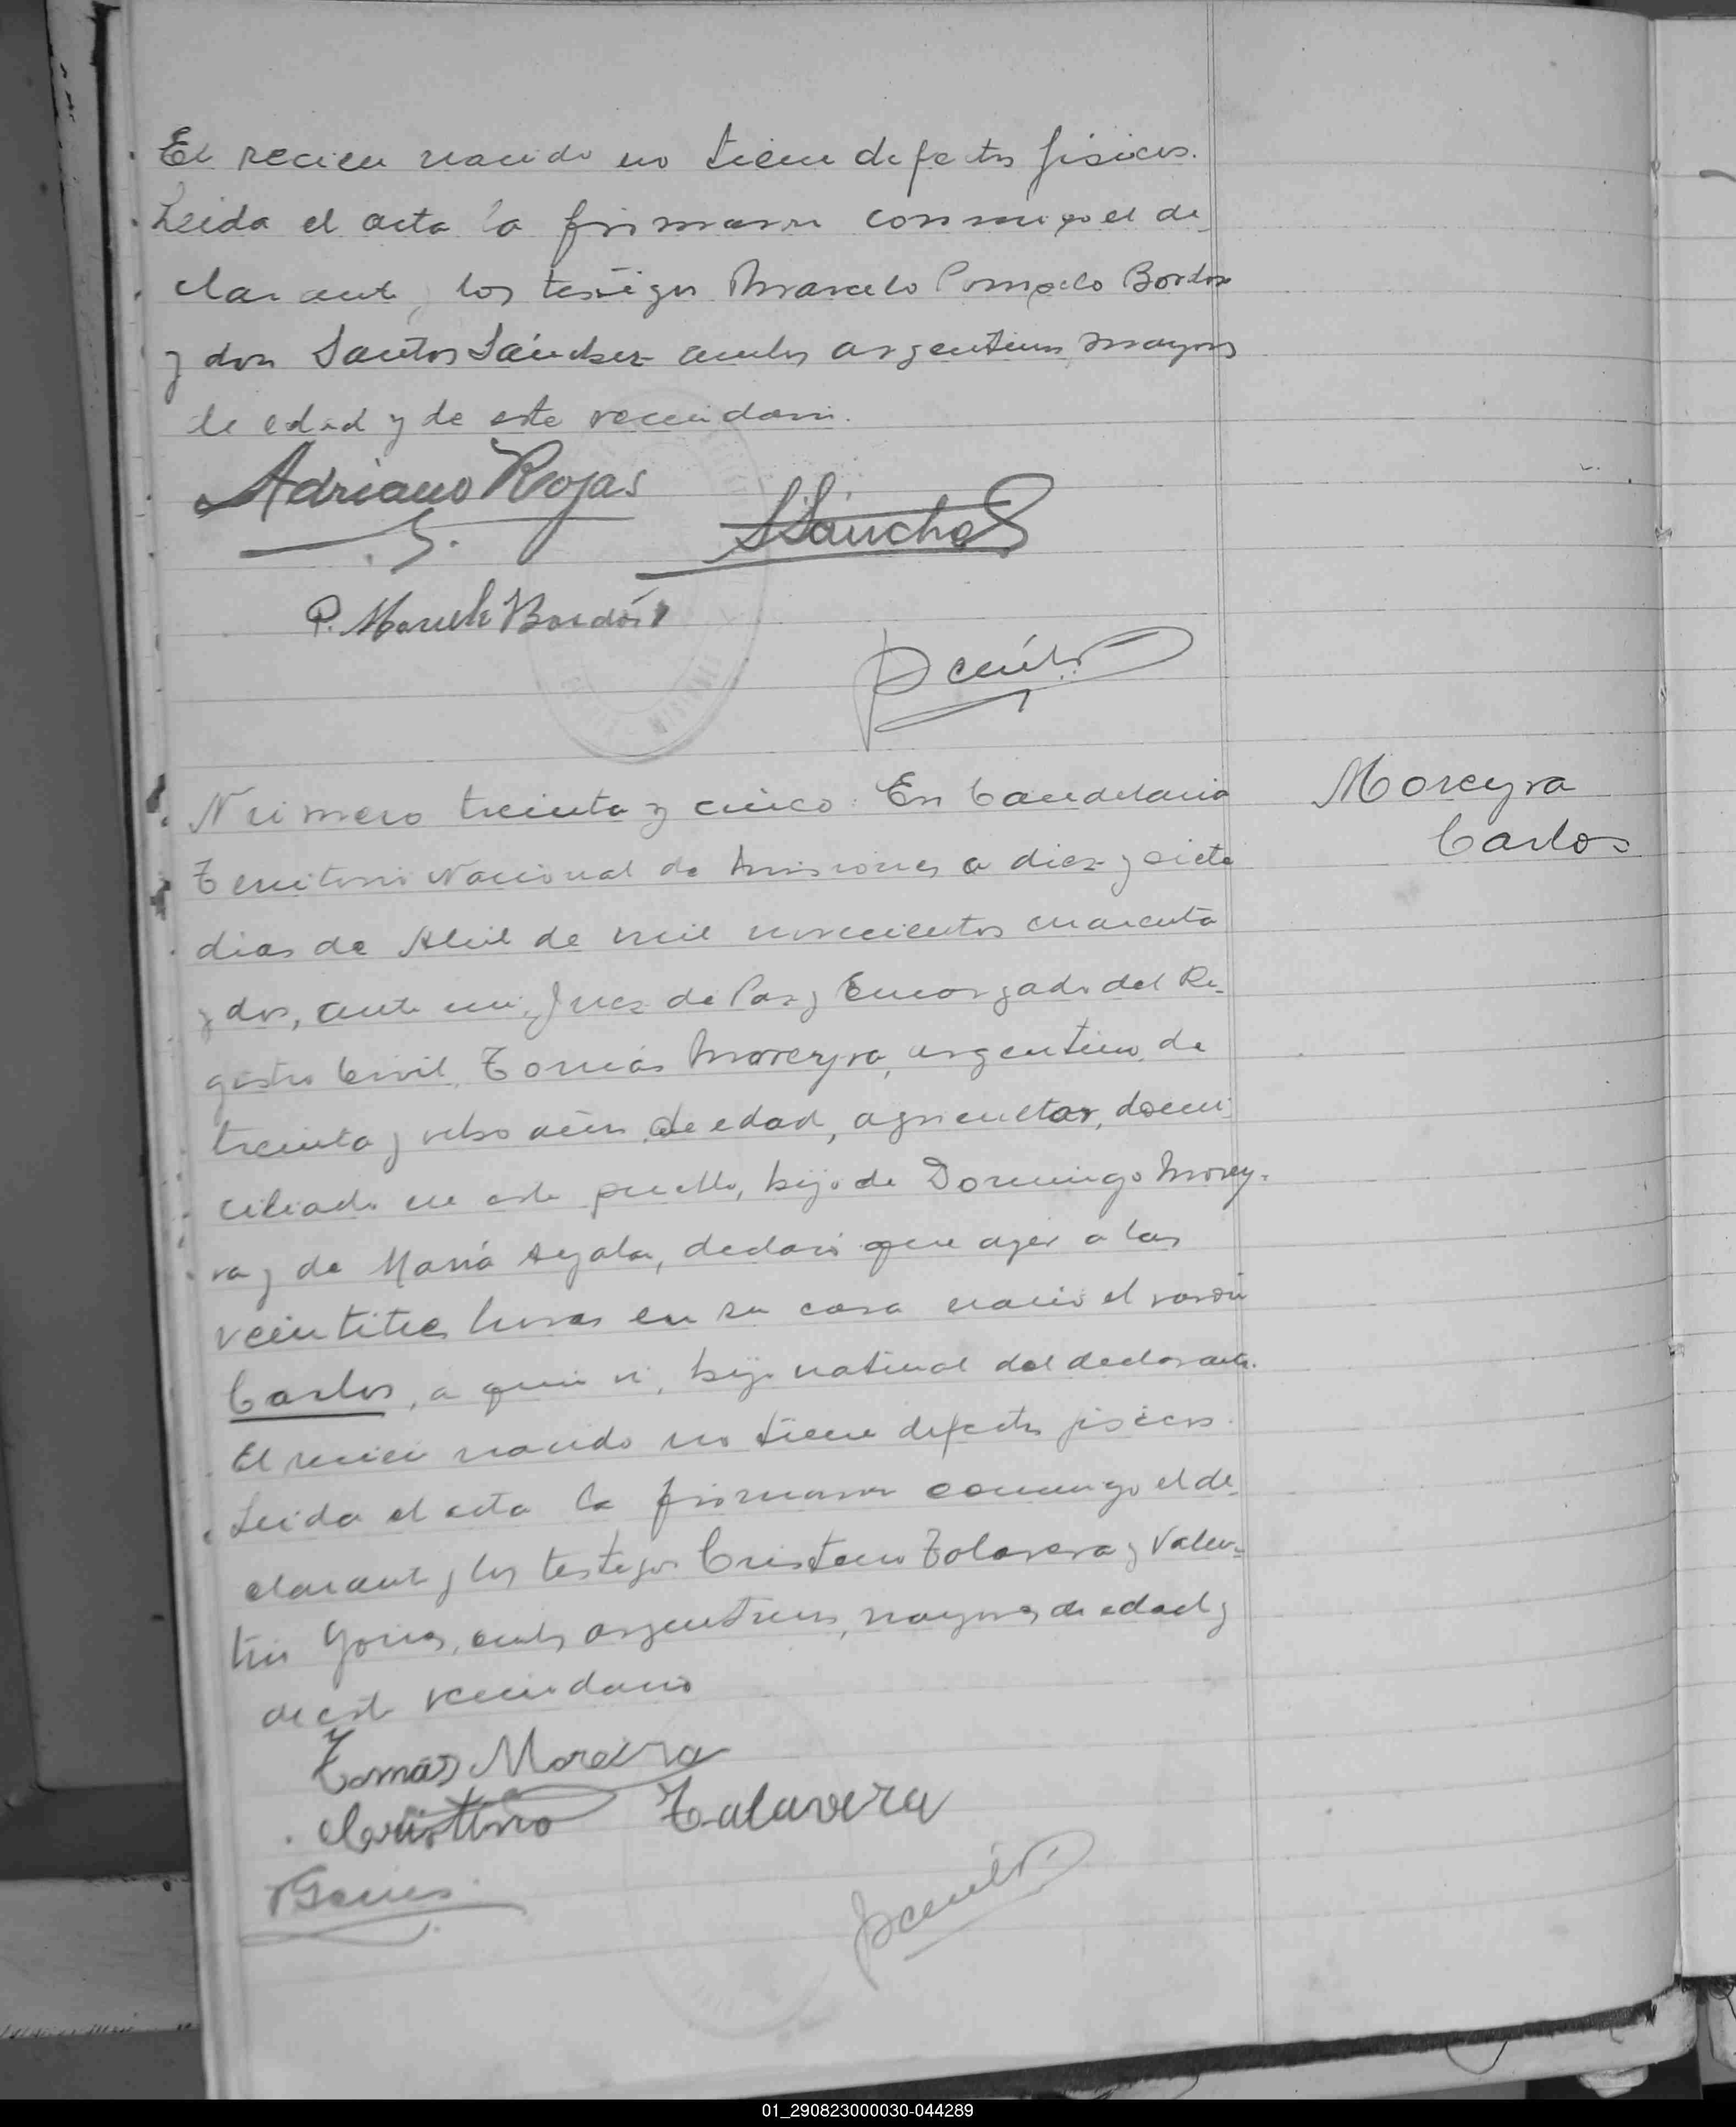 El recien nacido no tiene defectos fisicos.
Leida el acta la firmaron conmigo el de-
clarante, los testigos Marcelo Pompilo Bordon
y don Santos Sánchez ambos argentinos mayores
de edad y de este vecindario.
Adriano Rojas
SSanchez
P. Marcelo Bordón
Moreyra
Carlos
Numero treinta y cinco: En Candelaria
Territorio Nacional de Misiones a diez y siete
dias de Abril de mil novecientos cuarenta
y dos, ante mi, Juez de Paz y Encargado del Re-
gistro Civil, Tomás Moreyra, argentino, de
treinta y ocho años de edad, agricultor, domi
ciliado en este pueblo, hijo de Domingo Morey-
ra y de María Ayala, declaró que ayer a las
veintitres horas en su casa nació el varón
Carlos, a quien vi, hijo natural del declarante.
El recien nacido no tiene defectos fisicos.
Leida el acta la firmaron conmigo el de-
clarante y los testigos Cristino Talavera y Valen-
tin Goires, ambos argentinos, mayores de edad y
de este vecindario
Tomás Moreira
Cristino Talavera
01_290823000030-044289